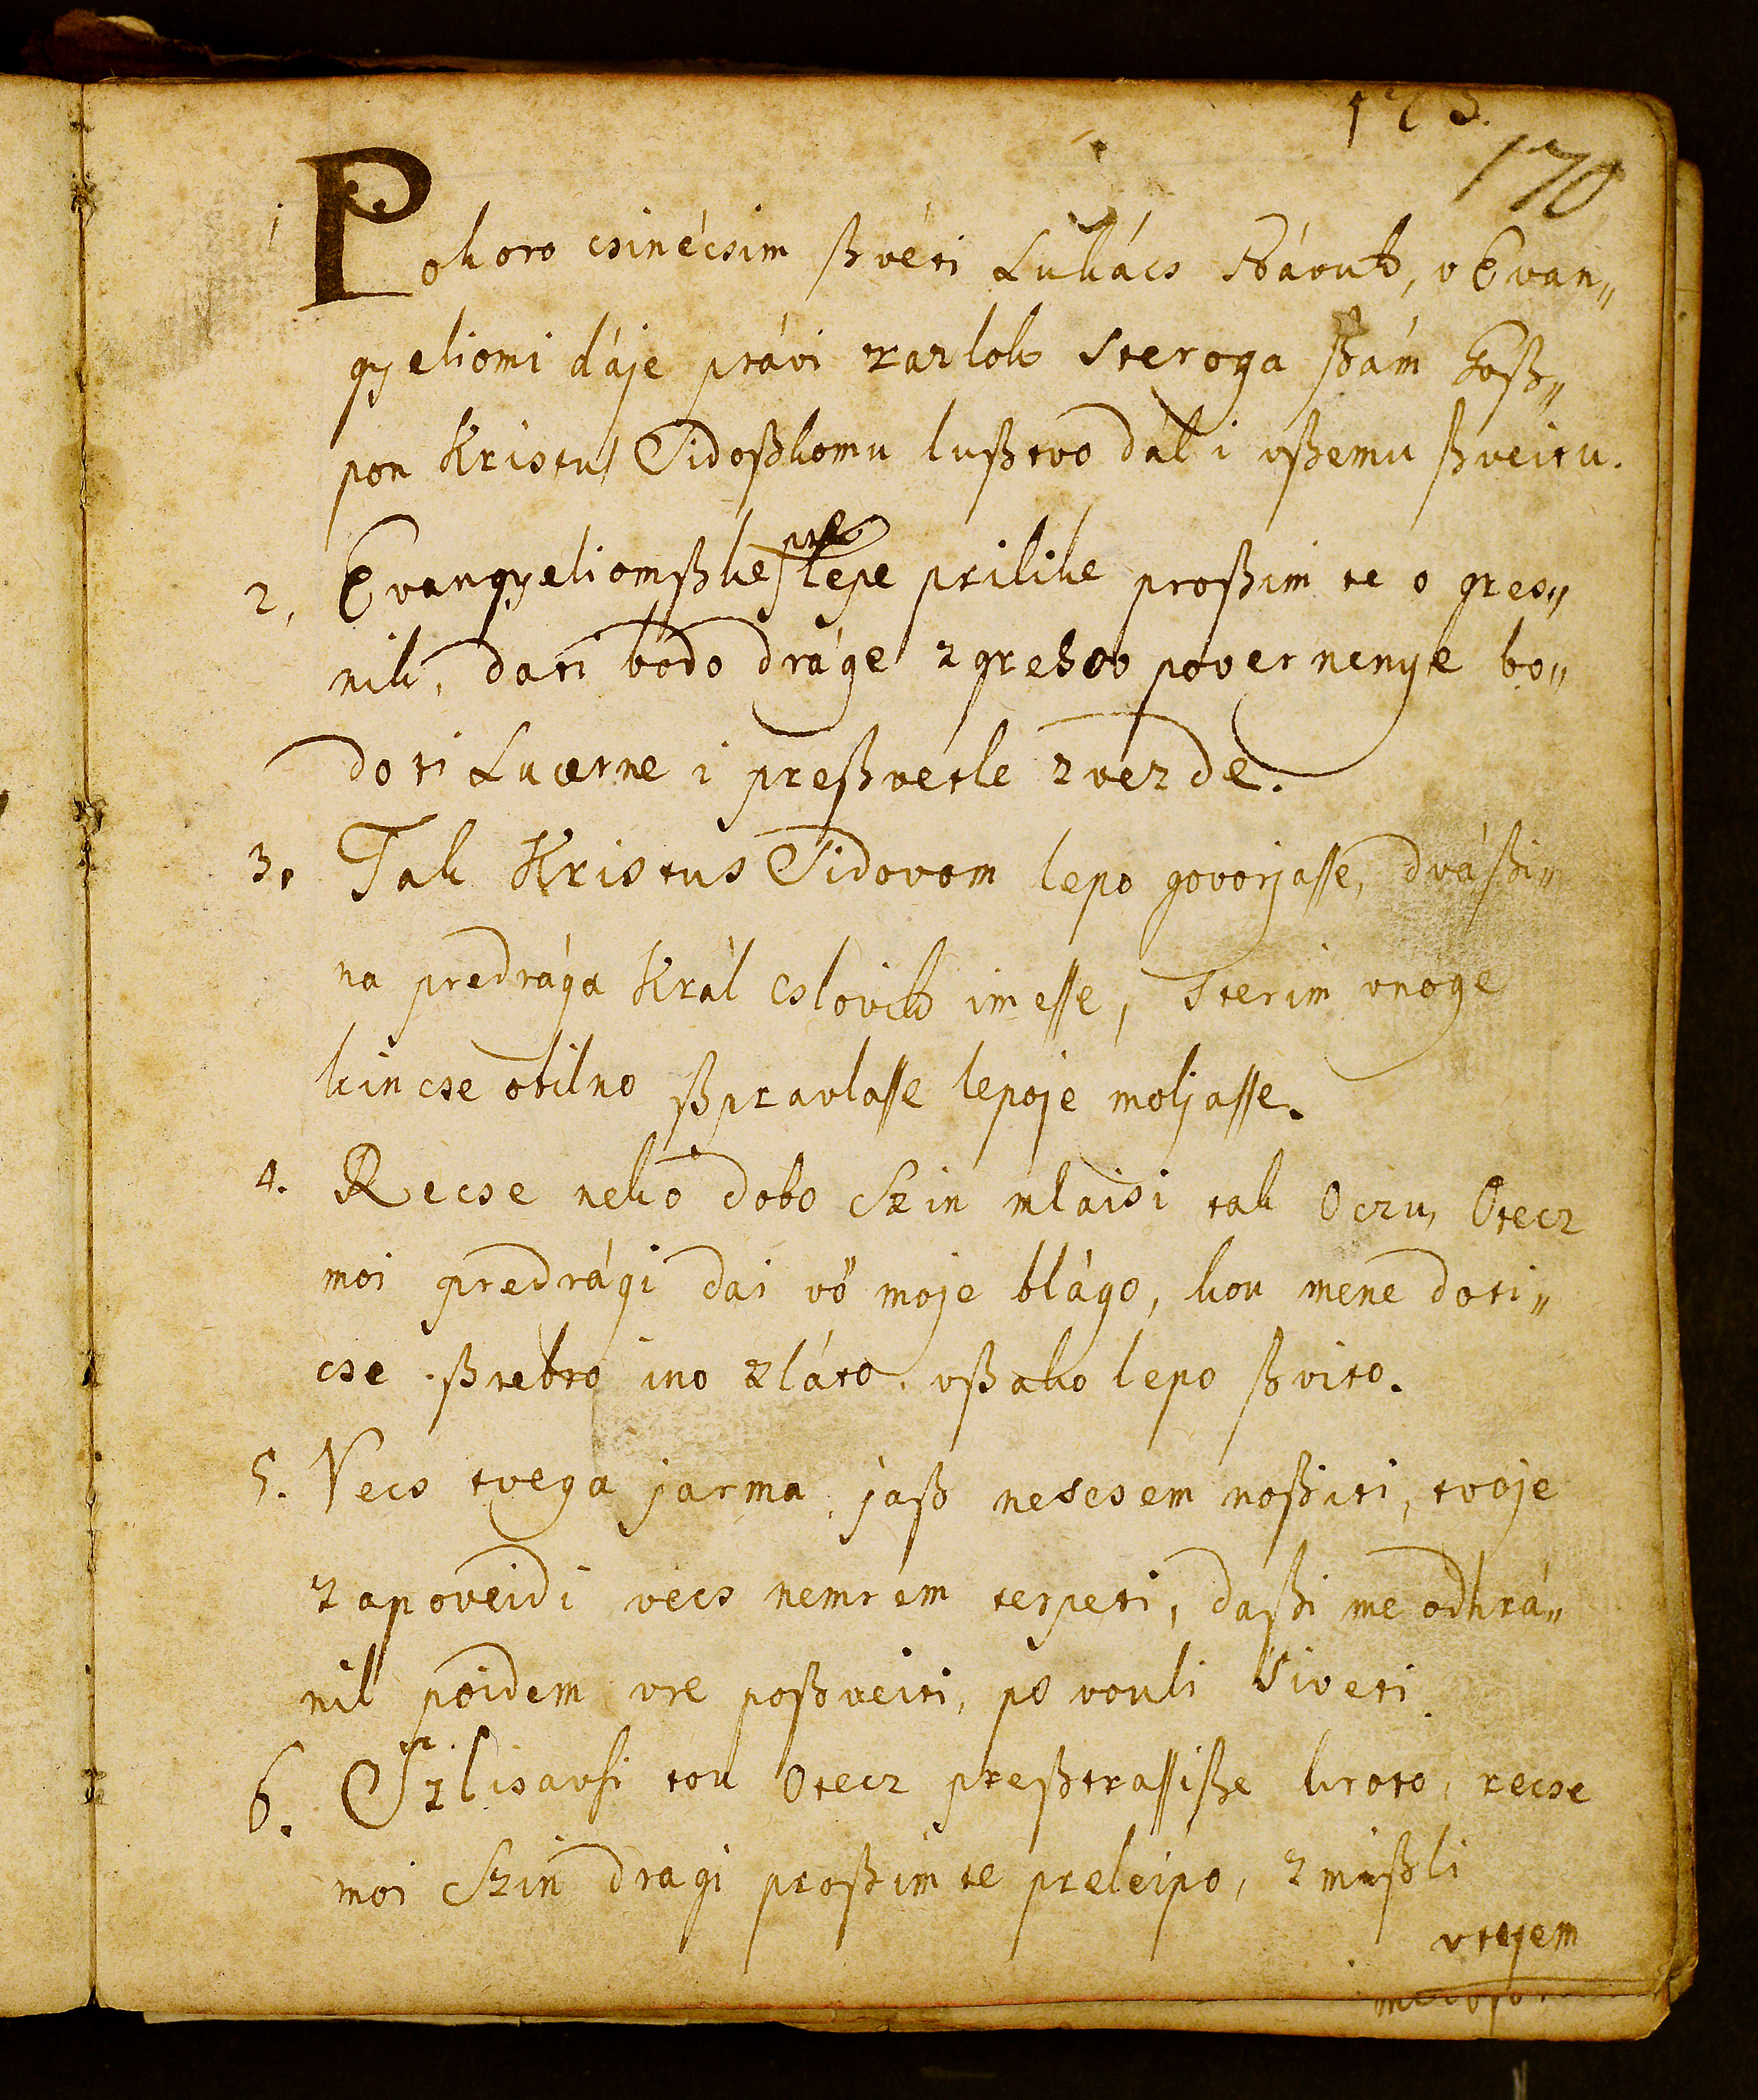 173.
170
1 Pokoro csinécsim ßvéti Lukács návuk, v Evan„
gyeliomi dáje právi zazlok steroga ßám Goß„
pon Kristus Sidoßkomu lußtvo dál i vßemu ßveitu.
2, Evangyeliomßke pre lepe prilike proßim te o gres„
nik, dati bodo dráge z grehov povernenye bo„
do ti Lucerne i preßvetle zvezde.
3. Tak Kristus Sidovom lepo govorjasse, dváßi„
na predrága Král cslovik imesse, sterim vnoge
kincse obilno ßpravlasse lepo je moljasse.
4. Recse neko dobo Szin mlaisi tak Oczu, Otecz
moi predrági dai vö moje blágo, kou mene doti„
cse ßrebro ino zláto, vßako lepo ßvito.
5. Vecs tvega jarma jaß nescsem noßiti, tvoje
zapoveidi vecs nemrem terpeti, daßi me odhrá„
nil poidem vre po ßveiti, po vouli siveti
6. Szlisavsi tou Otecz preßtrassiße kroto, recse
moi Szin dragi proßim te preleipo, z mißli
vtejem